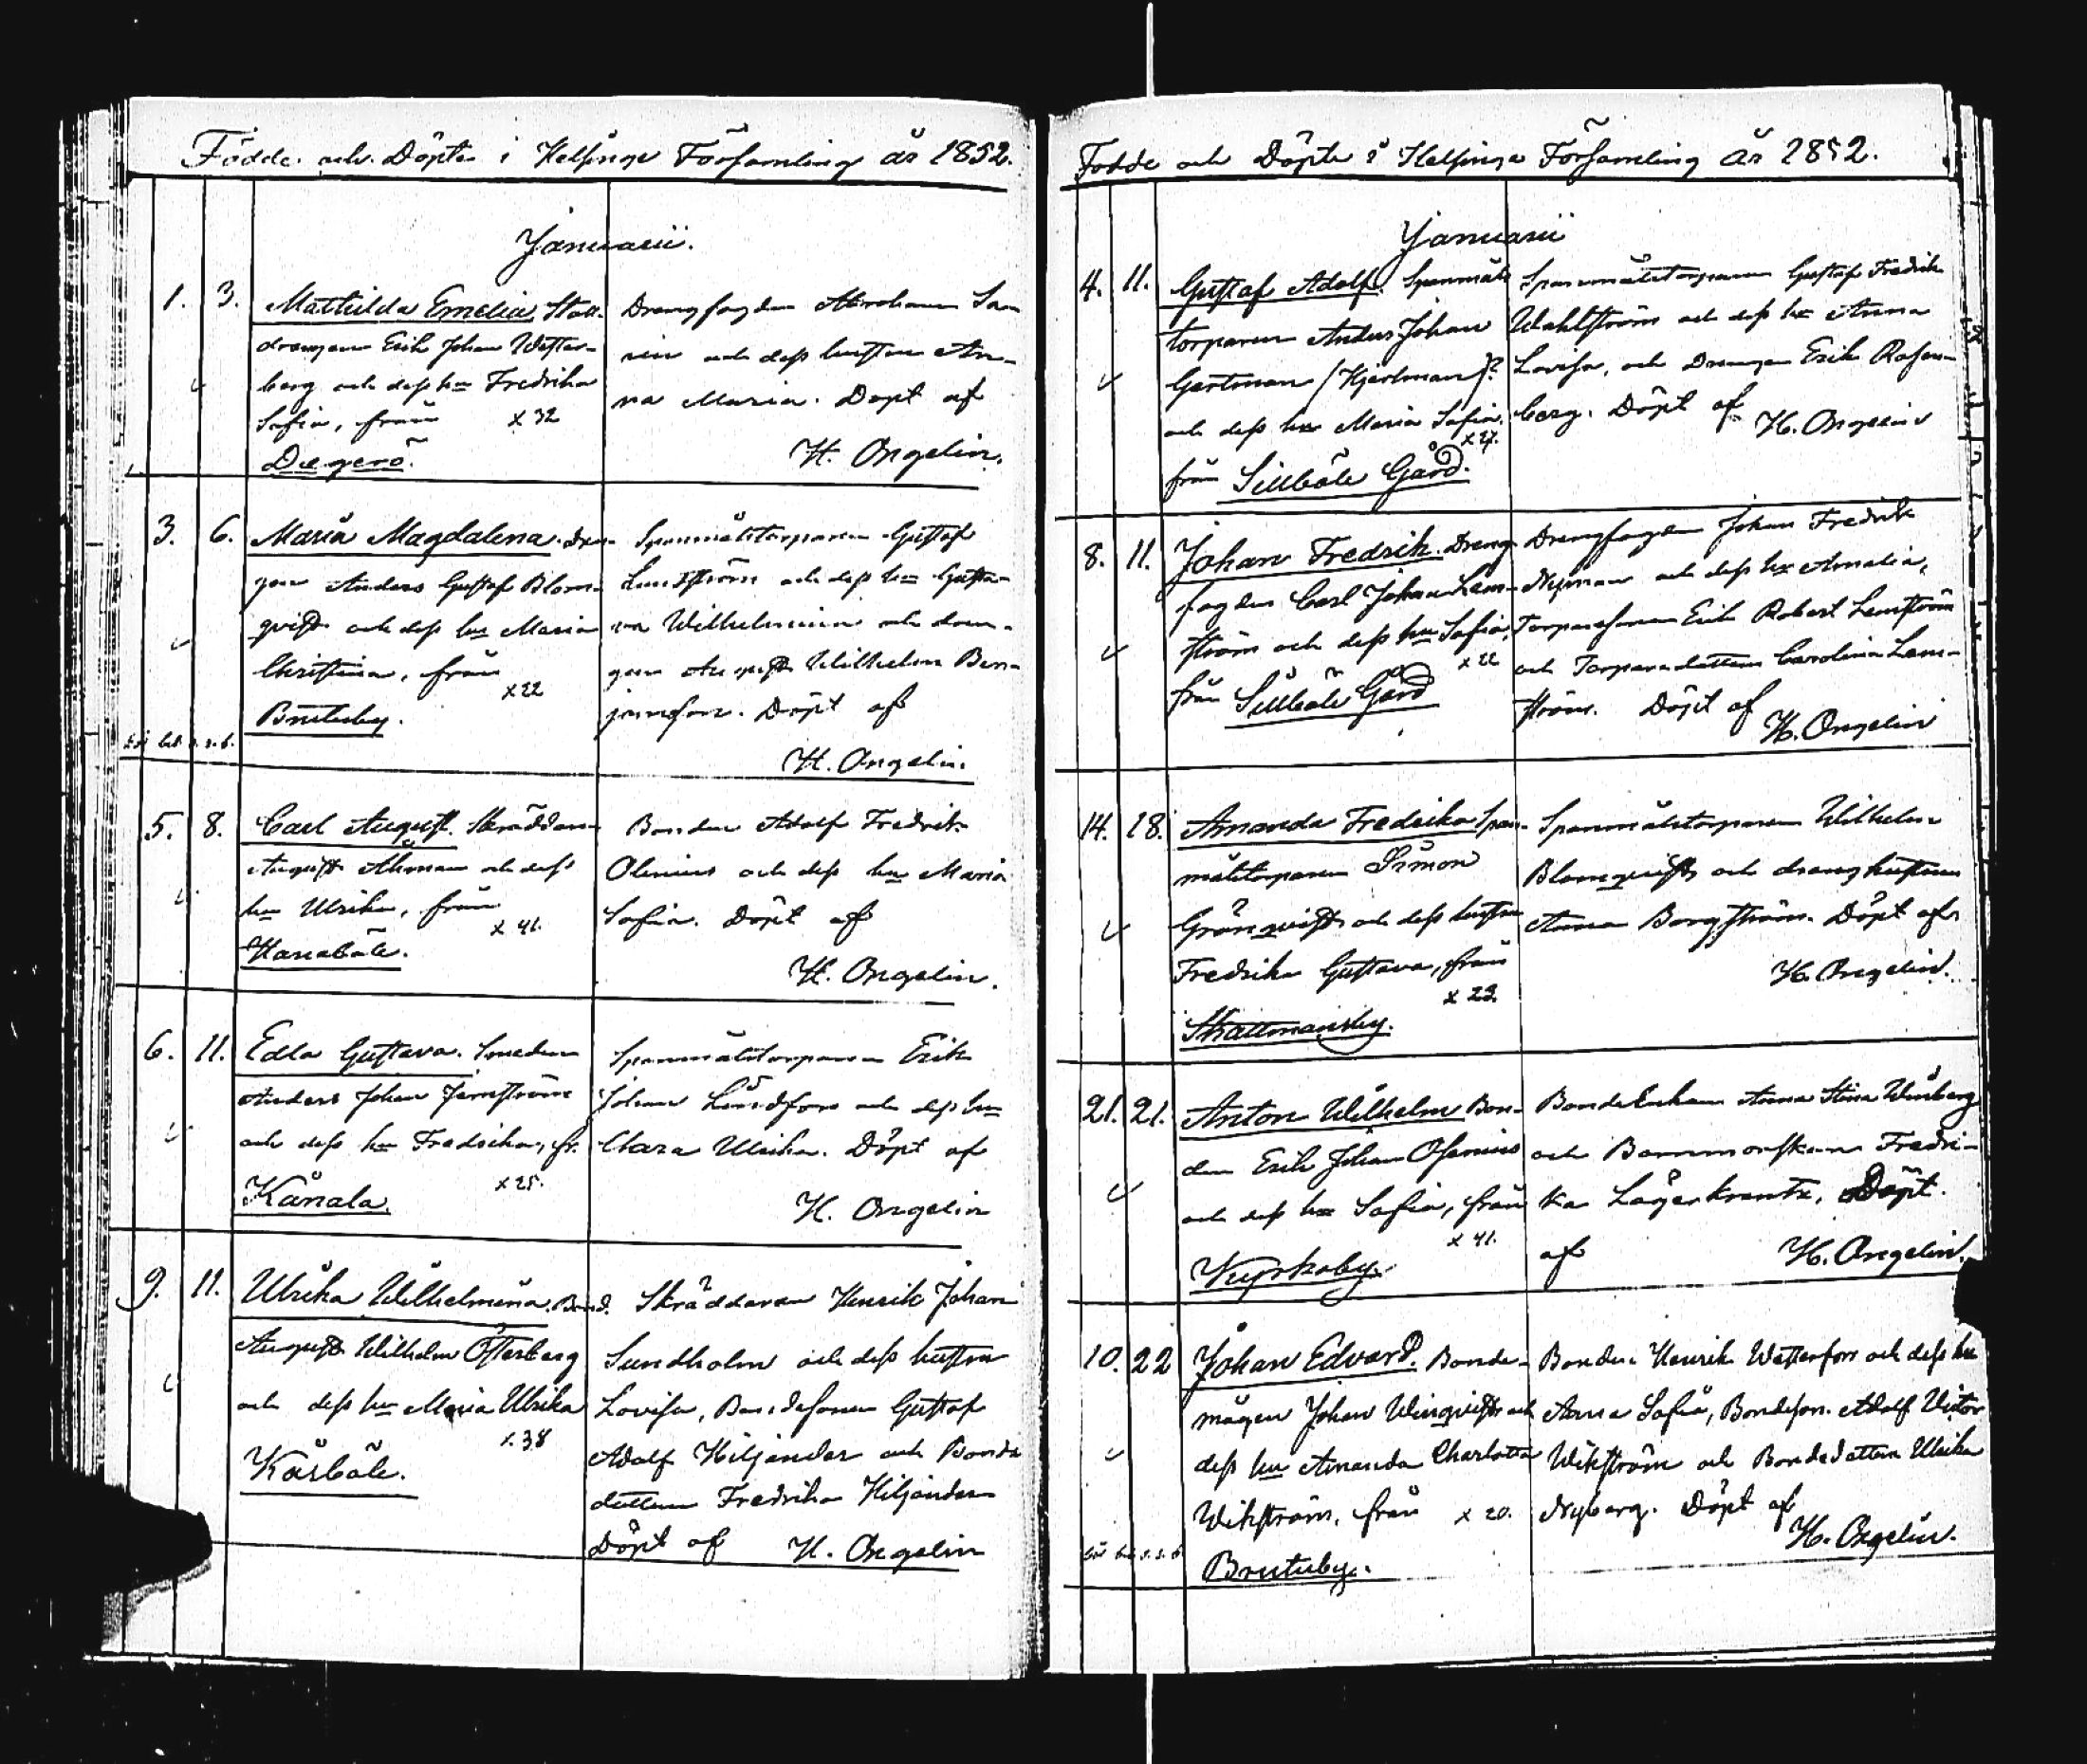 Födde och Döpte i Helsinge Församling år 1852.
Januarii.
1. 3. Mathilda Emelia, Stall-
drängen Erik Johan Wester-
berg och dess hu Fredrika
Sofia, från x 32
Degerö.
Drengfogden Abraham Sa
rin och dess hustru An-
na Maria. Döpt af
H. Ongelin.
3. 6. Maria Magdalena. Drän-
gen Anders Gustaf Blom-
qvist och dess hu Maria
Christina, från
x 22
Brutuby.
Spanmålstorparen Gustaf
Lundström och dess hu Gusta-
va Wilhelmina och drän-
gen August Wilhelm Ben-
jamsson. Döpt af
H. Ongelin.
5. 8. Carl August. Skräddaren
August Åhman och dess
hu Ulrika, från
x 41.
Hanaböle.
Bonden Adolf Fredrik
Olenius och dess hu Maria
Sofia. Döpt af
H. Ongelin.
6. 11. Edla Gustava. Smeden
Anders Johan Jernström
och dess hu Fredrika, fr.
x 25.
Kånala.
Spanmålstorparen Erik
Johan Lindfors och dess hu
Clara Ulrika. Döpt af
H. Ongelin
9. 11. Ulrika Wilhelmina. Bond.
August Wilhelm Österberg
och dess hu Maria Ulrika
x. 38
Kårböle.
Skräddaren Henrik Johan
Sundholm och dess hustru
Lovisa, Bondesonen Gustaf
Adolf Hiljander och Bonde
dottren Fredrika Hiljander
Döpt af H. Ongelin
Födde och Döpte i Helsinge Församling År 1852.
Januarii
4. 11. Gustaf Adolf. Spanmåls
torparen Anders Johan
Gertman (Hjertman)?
och dess hu Maria Sofia.
x 27.
från Sillböle Gård.
Spanmålstorparen Gustaf Fredrik
Wahlström och dess hu Anna
Lovisa, och Drengen Erik Rosen-
berg. Döpt af H. Ongelin
8. 11. Johan Fredrik. Dreng
fogden Carl Johan Lem-
ström och dess hu Sofia,
x 22
från Sillböle Gård
Drengfogden Johan Fredrik
Nyman och dess hu Amalia,
Torparesonen Erik Robert Lemström
och Torparedottren Carolina Lem-
ström. Döpt af
H. Ongelin
14. 18. Amanda Fredrika Span-
målstorparen Simon
Grönqvist och dess hustru
Fredrika Gustava, från
x 23.
Skattmansby.
Spanmålstorparen Wilhelm
Blomqvist och dränghustrun
Anna Borgström. Döpt af
H. Ongelin.
21. 21. Anton Wilhelm Bon-
den Erik Johan Osenius
och dess hu Sofia, från
x 41.
Kyrkoby.
BondeEnkan Anna Stina Winberg
och Barnmorskan Fredri-
ka Lagerkrantz, Döpt.
af H. Ongelin.
10. 22 Johan Edvard. Bonde-
mågen Johan Winqvist och
dess hu Amanda Charlotta
Wikström, från x 20.
Brutuby.
Bonden Henrik Westerfors och dess hu
Anna Sofia, Bondeson. Adolf Victor
Wikström och Bondedottren Ulrika
Nyberg. Döpt af
H. Ongelin.